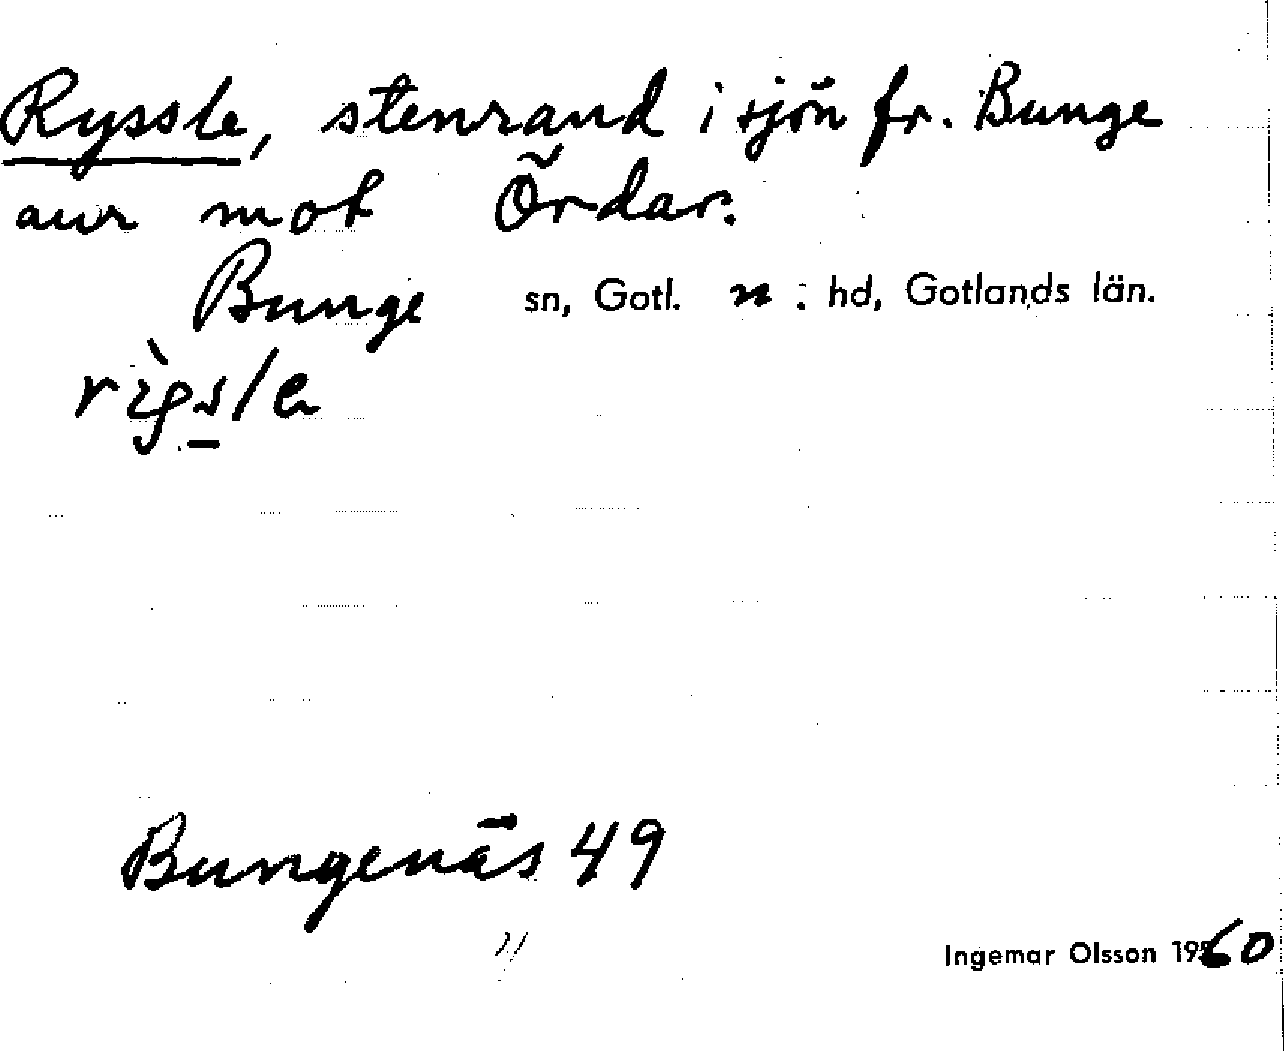 Ryssle, stenrand i sjön fr. Bunge
aur mot Ördar.
Bunge sn, Gotl. n. hd, Gotlands län.
Bungenäs 49
Ingemar Olsson 1960